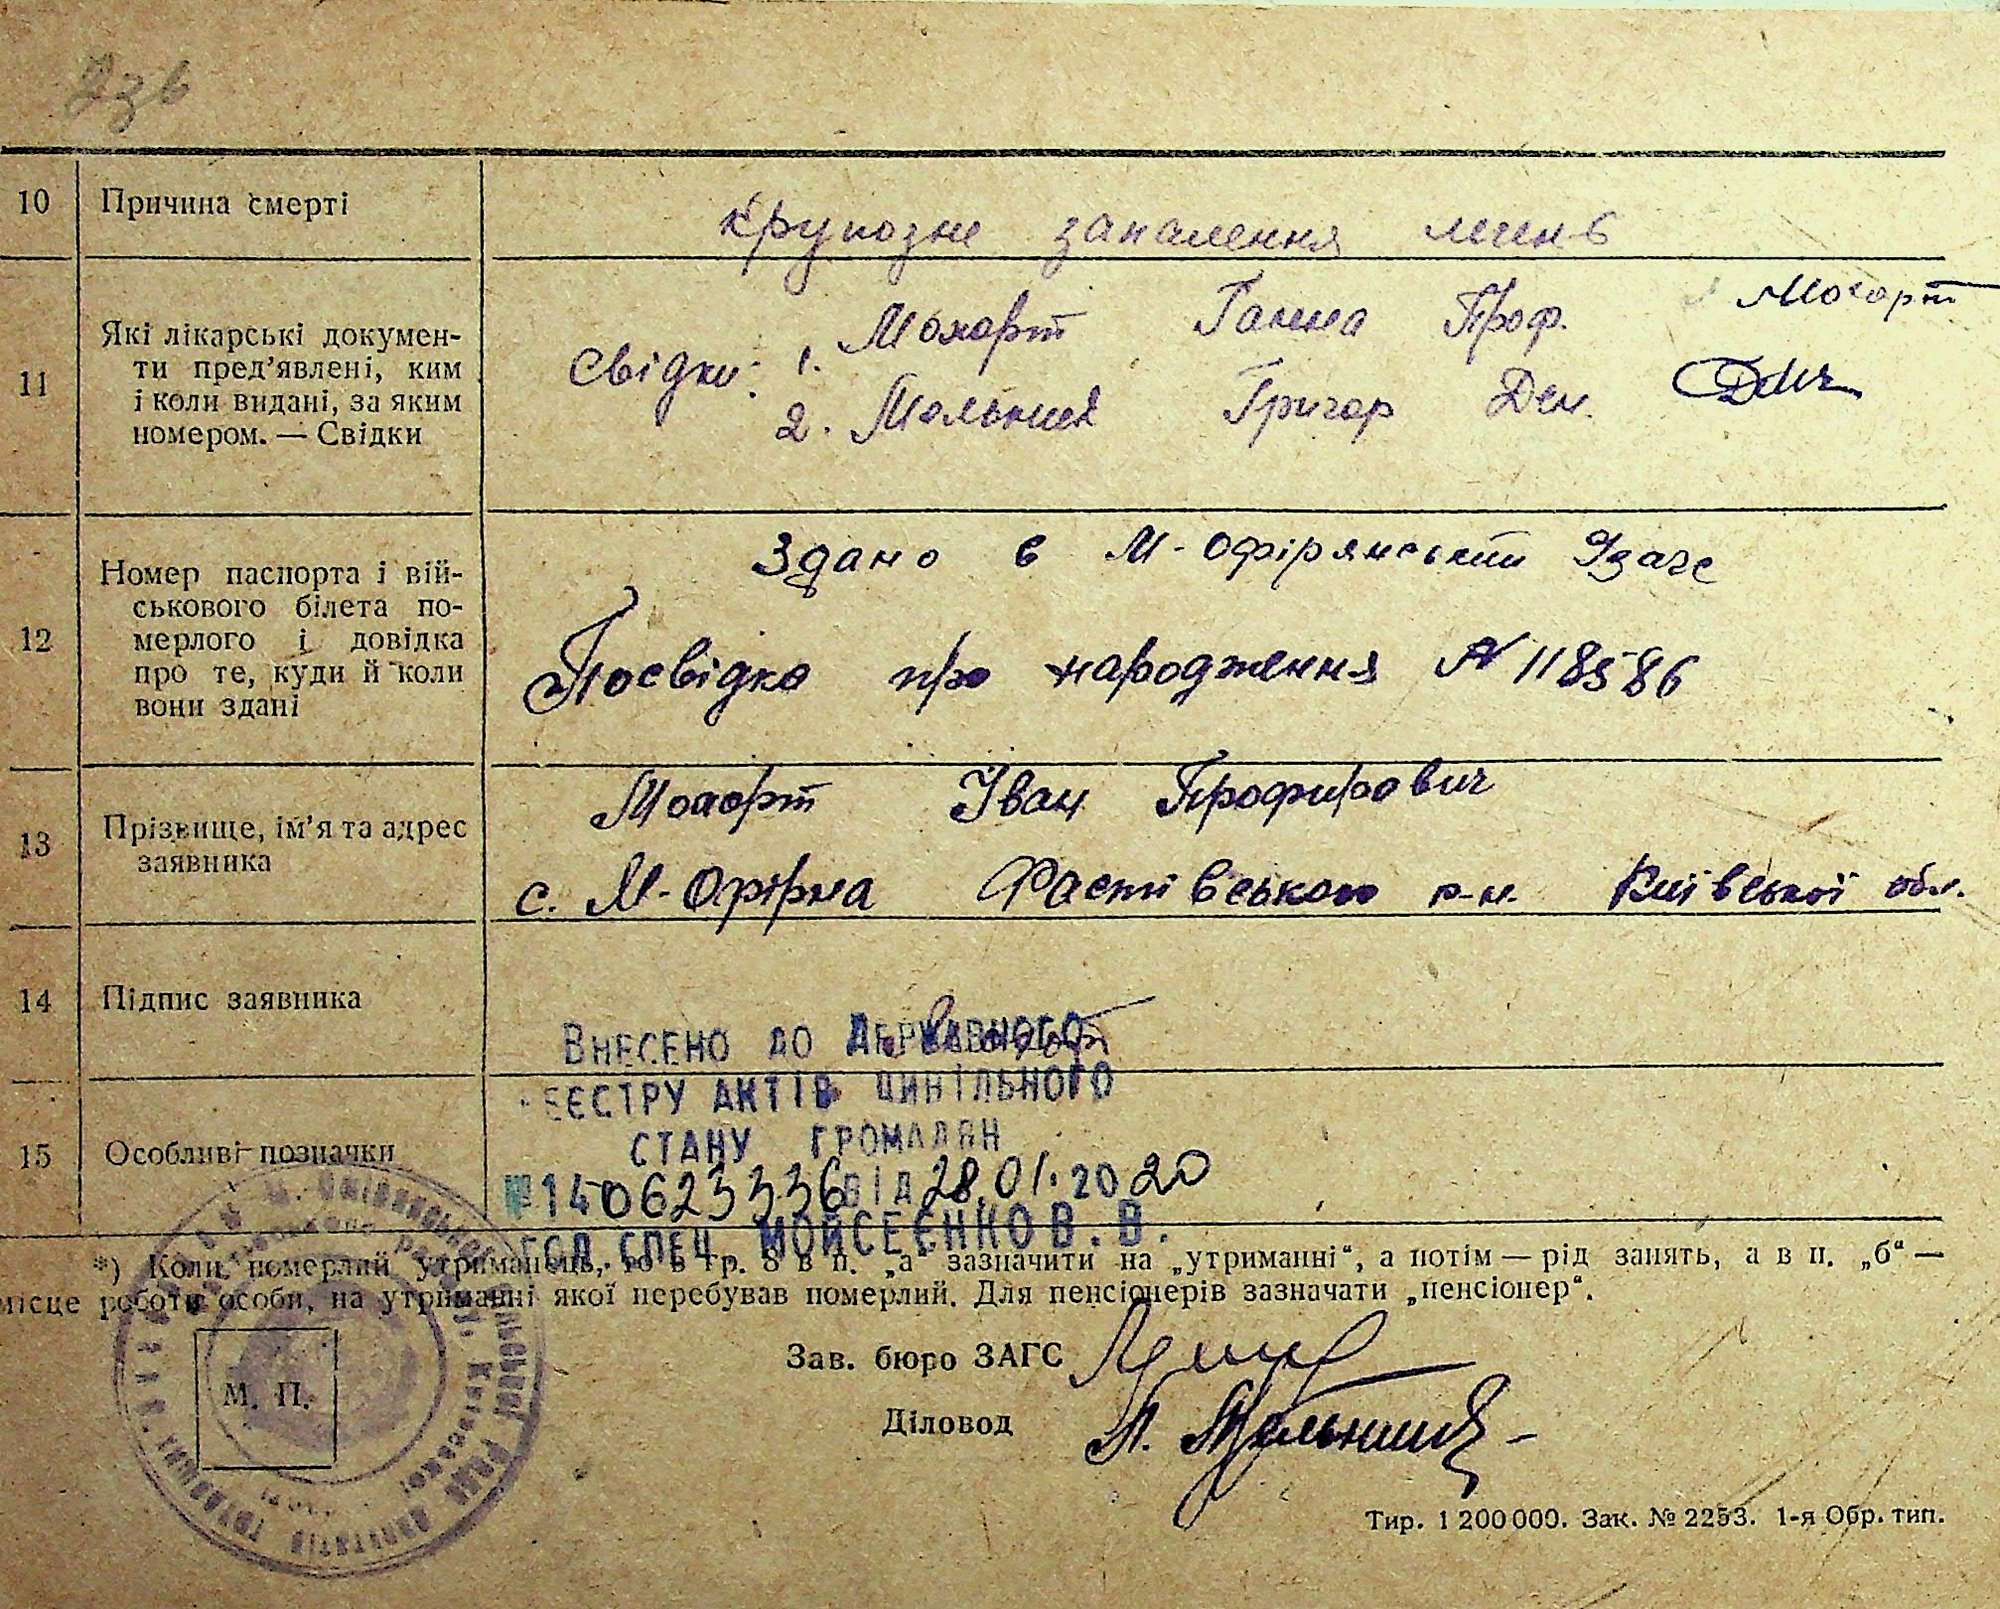 10 Причина смерті
Крупозне запалення легень
11 Які лікарські докумен-
ти пред'явлені, ким
і коли видані, за яким
номером. — Свідки
Свідки: 1. Мохорт Ганна Проф. Мохорт
2. Мельник Григор Дем.
12 Номер паспорта і вій-
ськового білета по-
мерлого і довідка
про те, куди й коли
вони здані
Здано в М-Офірянський Ізагс
Посвідка про народження № 118586
13 Прізвище, ім'я та адрес
заявника
Мохорт Іван Профирович
с. М-Офірна Фастівського р-н. Київської обл.
14 Підпис заявника
15 Особливі позначки
Внесено до Державного
реєстру актів цивільного
стану громадян
№140623336 від 28.01.2020
гол. спец. Мойсеєнко В. В.
*) Коли померлий утриманець, то в гр. 8 в п. „а“ зазначити на „утриманні“, а потім — рід занять, а в п. „б“ —
місце роботи особи, на утриманні якої перебував померлий. Для пенсіонерів зазначати „пенсіонер“.
М. П.
Зав. бюро ЗАГС
Діловод П. Мельник
Тир. 1 200 000. Зак. № 2253. 1-я Обр. тип.